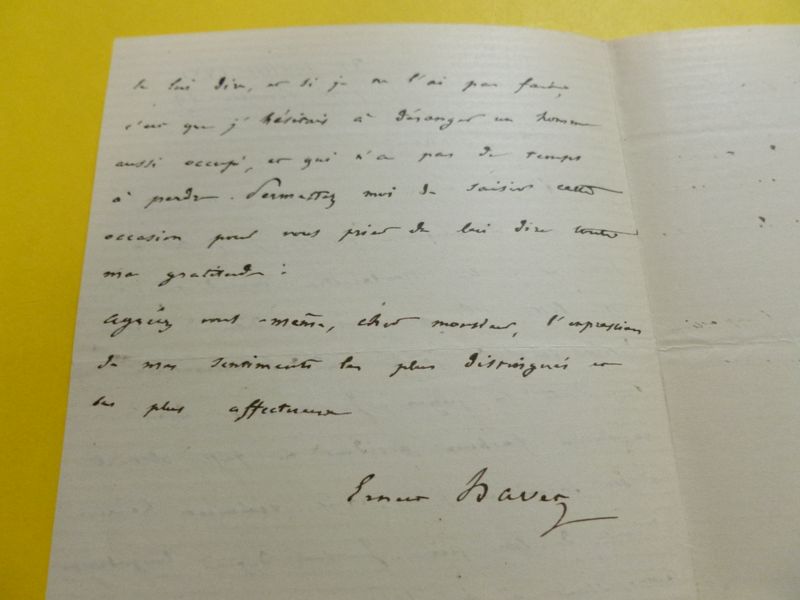 le lui dire, et si je ne l'ai pas faite,
c'est que j'hésitais à déranger un homme
aussi occupé, et qui n'a pas de temps
à perdre. Permettez moi de saisir cette
occasion pour vous prier de lui dire toute
ma gratitude :
agréez vous-même, cher monsieur, l'expression
de mes sentiments les plus distingués et
les plus affectueux
Ernest Havet